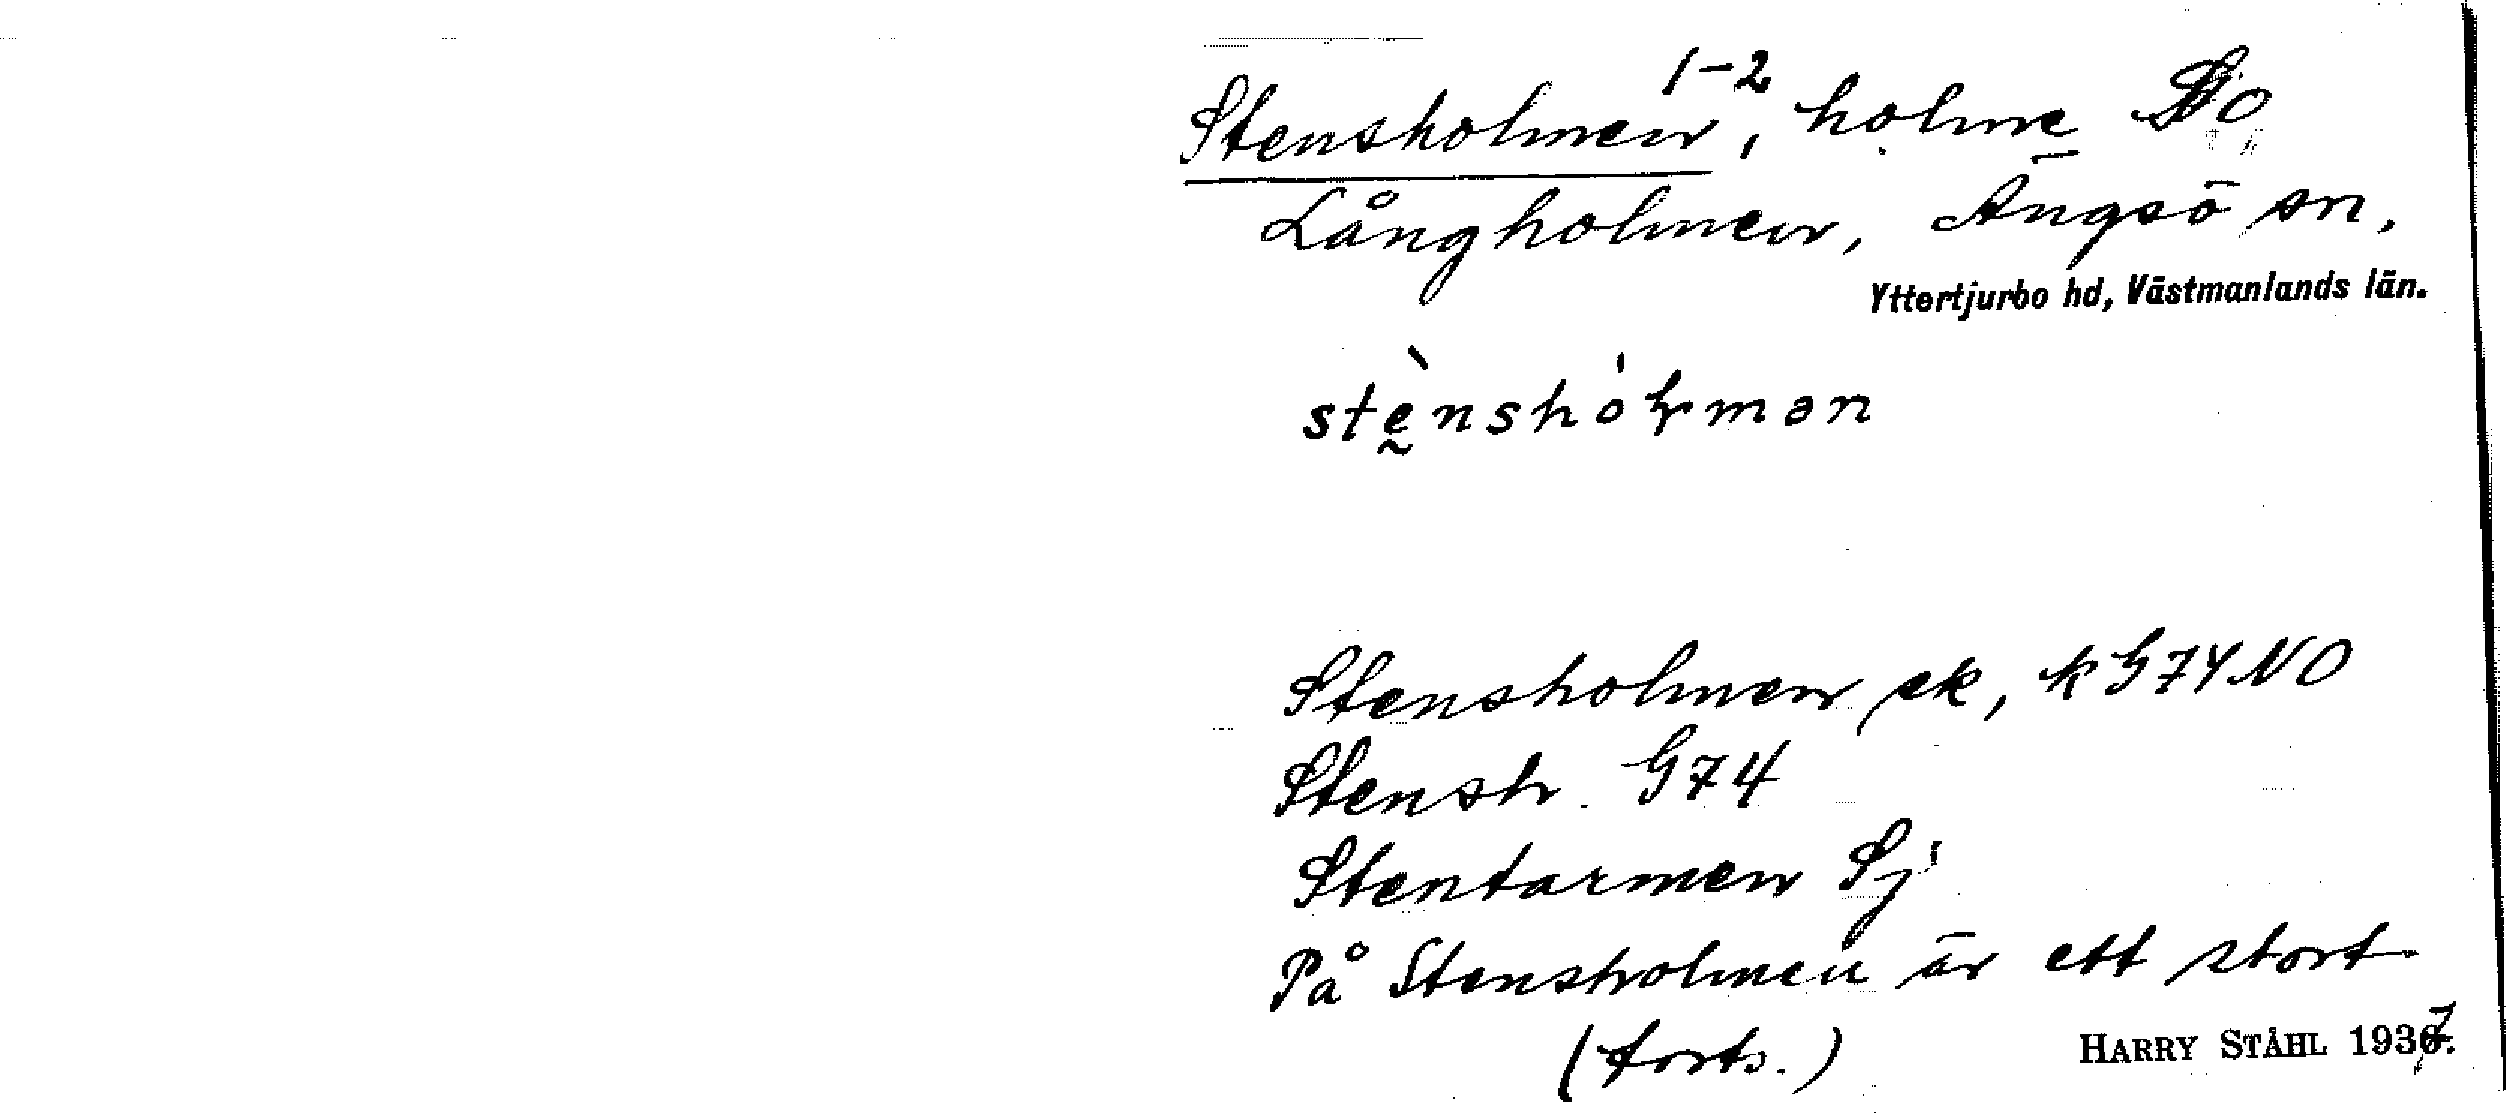 Stensholmen 1-2, holme SO
Långholmen, Ängsö sn,
Yttertjurbo hd, Västmanlands län.
stènshól̥mən
Stensholmen ek, k G74 NO
Stensh. G74
Stentarmen Sj
På Stensholmen är ett stort
(forts.)
HARRY STÅHL 1937.